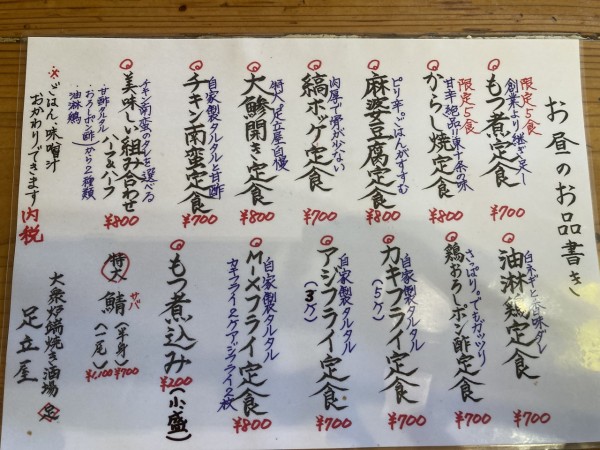 お昼のお品書き
限定5食
創業より継ぎ足し
もつ煮定食
¥700
限定5食
甘辛絶品!!東十条の味
からし焼定食
¥800
ピリ辛でごはんがすすむ
麻婆豆腐定食
¥800
肉厚で骨が少ない
縞ホッケ定食
¥700
特大足立屋自慢
大鯵開き定食
¥800
自家製タルタルと甘酢
チキン南蛮定食
¥700
美味しい組み合わせ
ハーフ&ハーフ
¥800
チキン南蛮のタレを選べる
・甘酢タルタル
・おろしポン酢
・油淋鶏
から2種類
※ごはん、味噌汁
おかわりできます
内税
白ネギと香味ダレ
油淋鶏定食
¥700
さっぱりでもガッツリ
鶏おろしポン酢定食
¥700
自家製タルタル
カキフライ定食
(5ケ)
¥700
自家製タルタル
アジフライ定食
(3ケ)
¥700
自家製タルタル
カキフライ2ケアジフライ2枚
MIXフライ定食
¥800
もつ煮込み
¥200
(小盛)
特大
鯖
サバ
(半身)
¥700
(一尾)
¥1,100
大衆炉端焼き酒場
足立屋